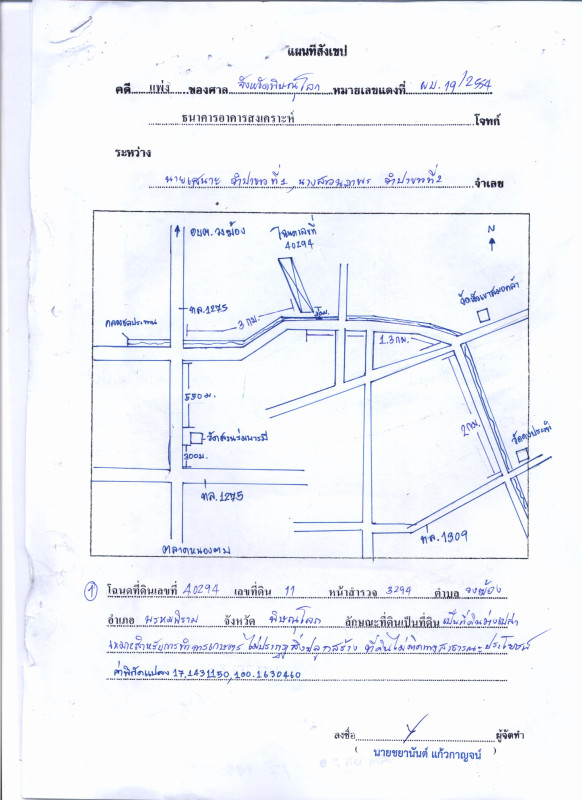 แผนที่สังเขป
คดี แพ่ง ของศาล จังหวัดพิษณุโลก หมายเลขแดงที่ ผบ. 19/2554
ธนาคารอาคารสงเคราะห์ โจทก์
ระหว่าง
ที่ 1 ที่ 2 จำเลย
อบต. วงฆ้อง
โฉนดเลขที่
40294
N
ทล. 1275
คลองชลประทาน
3 กม.
1.3 กม.
550 ม.
300 ม.
2 กม.
ทล. 1275
ทล. 1309
1 โฉนดที่ดินเลขที่ 40294 เลขที่ดิน 11 หน้าสำรวจ 3294 ตำบล วงฆ้อง
อำเภอ พรหมพิราม จังหวัด พิษณุโลก ลักษณะที่ดินเป็นที่ดิน เป็นที่ดินว่างเปล่า
เหมาะสำหรับการทำการเกษตร ไม่ปรากฏสิ่งปลูกสร้าง ที่ดินไม่ติดทางสาธารณะประโยชน์
ค่าพิกัดแปลง 17.1431150, 100.1630460
ลงชื่อ ผู้จัดทำ
( นายชยานันต์ แก้วกาญจน์ )